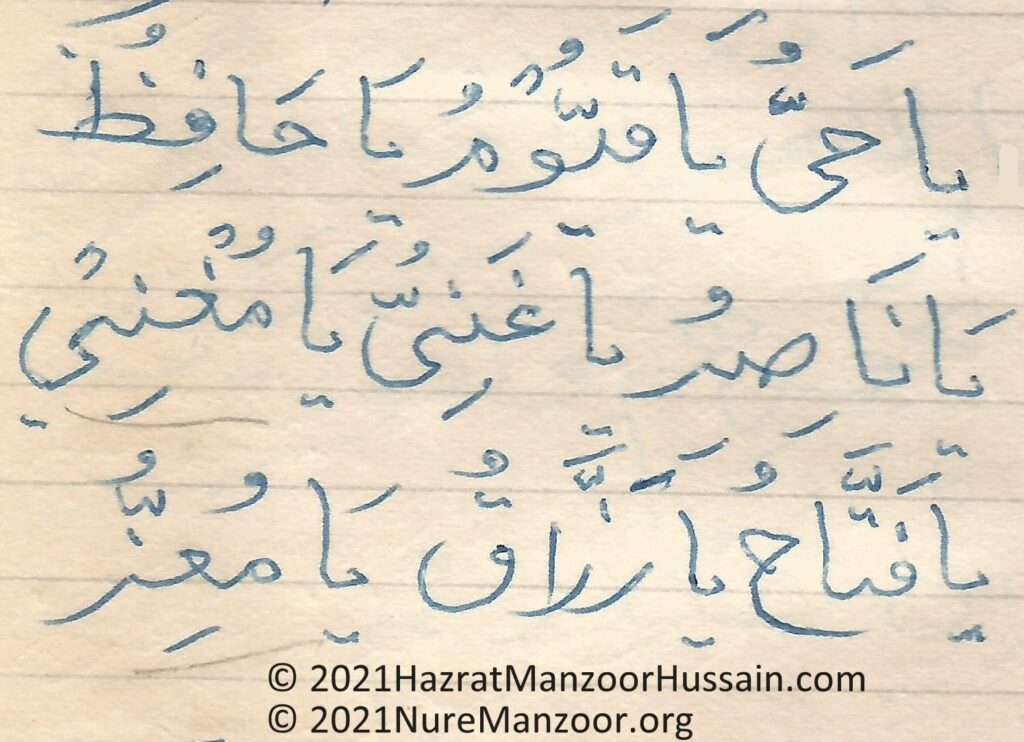 يَا حَىُّ يَا قَيُّوْمُ يَا حَافِظُ
يَا نَاصِرُ يَا غَنِىُّ يَا مُغْنِيْ
يَا فَتَّاحُ يَا رَزَّاقُ يَا مُعِزُّ
© 2021HazratManzoorHussain.com
© 2021NureManzoor.org